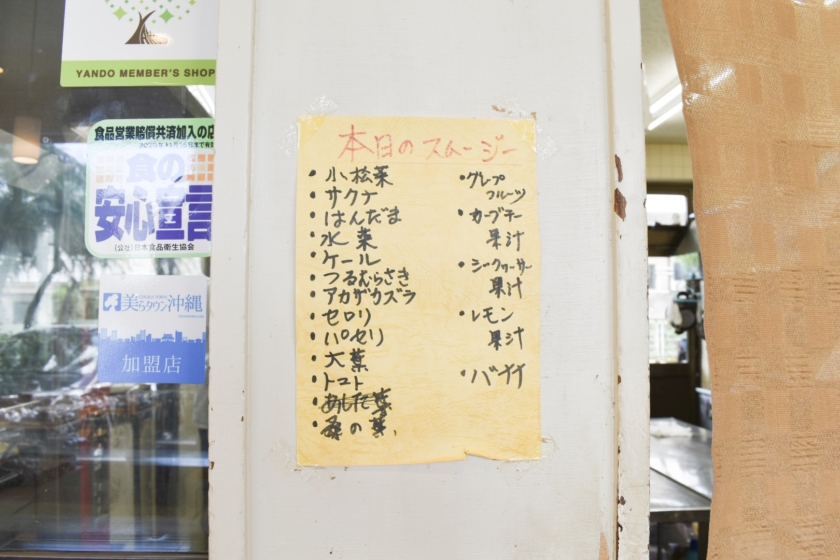 YANDO MEMBER'S SHOP
食品営業賠償共済加入の店
食の
安心宣言
(公社)日本食品衛生協会
美らタウン沖縄
加盟店
本日のスムージー
・小松菜
・サクナ
・はんだま
・水菜
・ケール
・つるむらさき
・アカザカズラ
・セロリ
・パセリ
・大葉
・トマト
・あしたば
・桑の葉、
・グレープ
フルーツ
・カーブチー
果汁
・シークヮーサー
果汁
・レモン
果汁
・バナナ